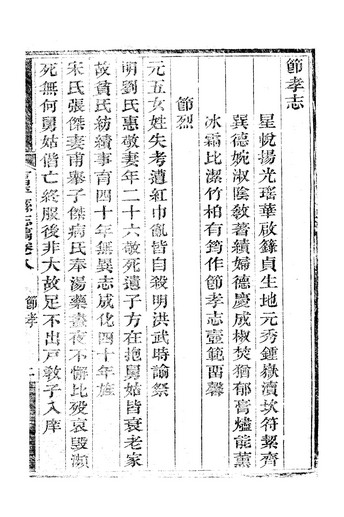 節孝志
星悅揚光瑤華啟籙貞生地元秀鍾嶽瀆坎符絜齊
巽德婉淑陰敎著績婦德慶成椒焚猶郁膏爐能薰
冰霜比潔竹柏有筠作節孝志壼範兩馨
節烈
元五女姓失考遭紅巾亂皆自殺明洪武時諭祭
明劉氏惠敬妻年二十六敬死遺子方在抱舅姑皆衰老家
故貧氏紡績事育四十年無異志成化四十年旌
宋氏張傑妻甫舉子傑病氏奉湯藥晝夜不懈比歿哀毀瀕
死無何舅姑偕亡終服後非大故足不出戸敎子入庠
縣志稿卷八
節孝
一